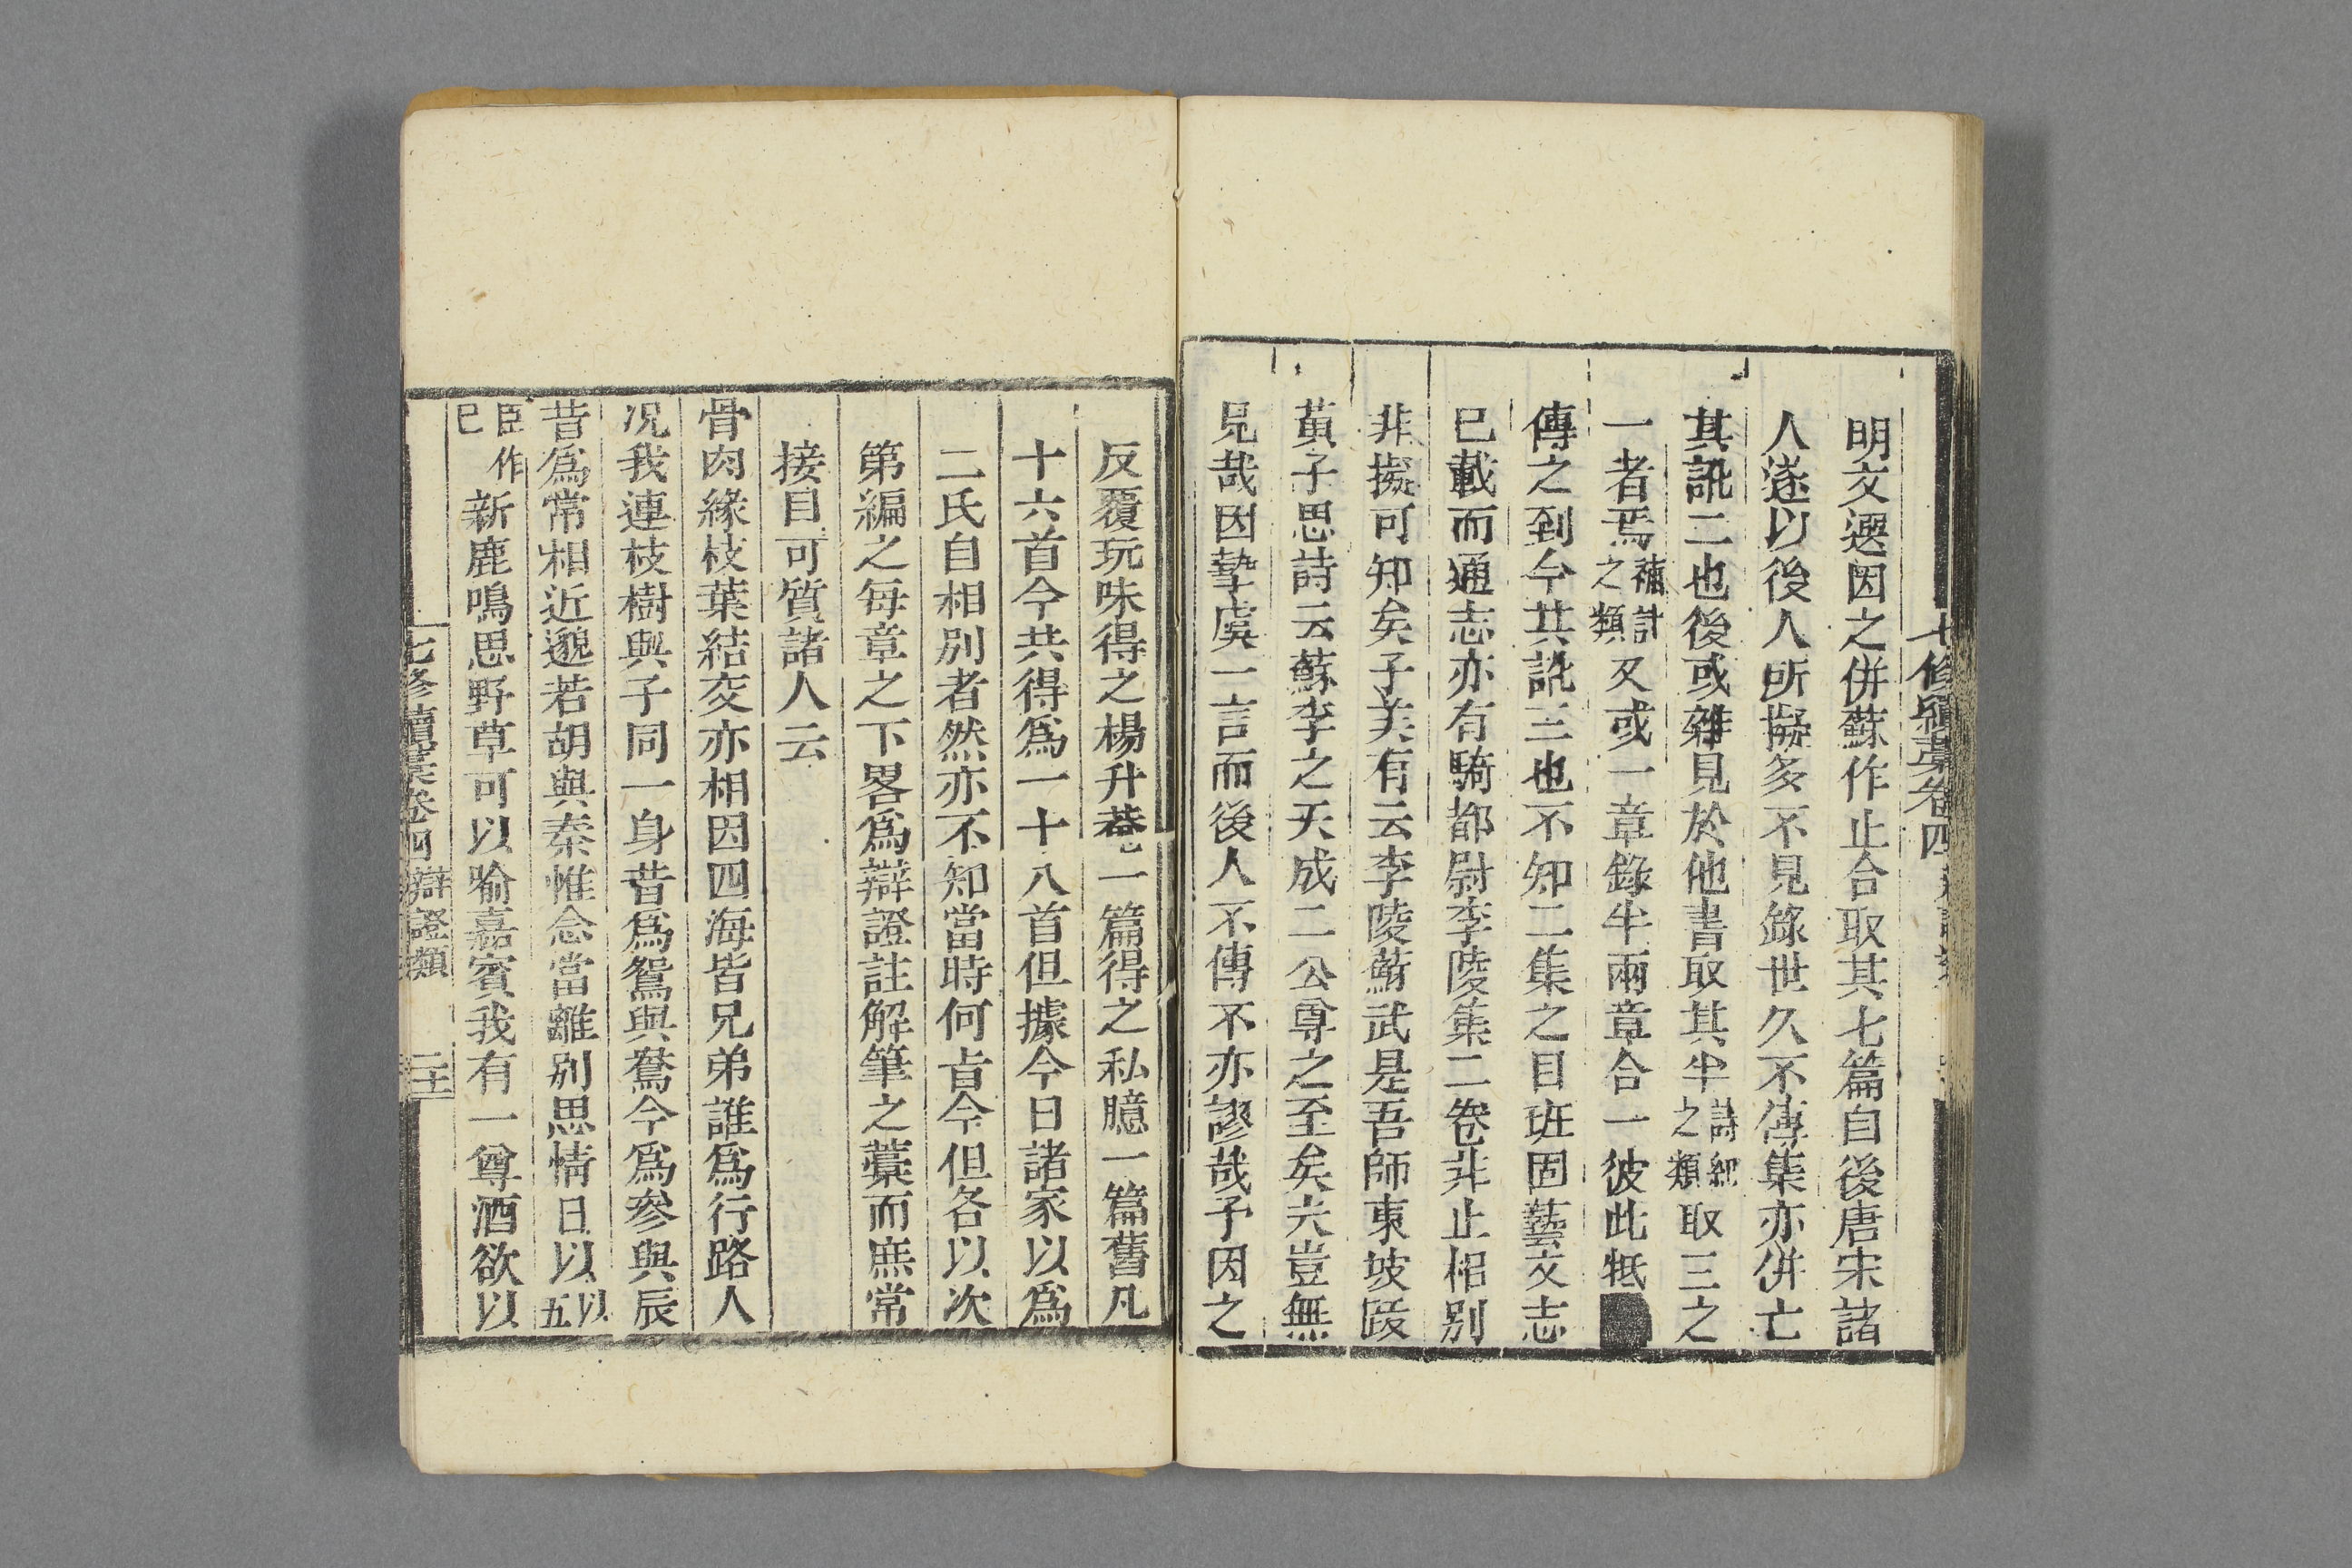 七修續藁卷四
明文選因之併蘇作止合取其七篇自後唐宋諸
人遂以後人所擬多不見錄世久不傳集亦併亡
其訛二也後或雜見於他書取其半詩紀之類取三之
一者焉補註之類又或一章錄半兩章合一彼此牴
傳之到今其訛三也不知二集之目班固藝文志
已載而通志亦有騎都尉李陵集二卷非止相別
非擬可知矣子美有云李陵蘇武是吾師東坡跋
黃子思詩云蘇李之天成二公尊之至矣夫豈無
見哉因摯虞一言而後人不傳不亦謬哉予因之
反覆玩味得之楊升菴一篇得之私臆一篇舊凡
十六首今共得爲一十八首但據今日諸家以爲
二氏自相別者然亦不知當時何㫖今但各以次
第編之每章之下畧爲辯證註解筆之藁而庶常
接目可質諸人云
骨肉緣枝葉結交亦相因四海皆兄弟誰爲行路人
况我連枝樹與子同一身昔爲鴛與鴦今爲參與辰
昔爲常相近邈若胡與秦惟念當離別思情日以以五
臣作已新鹿鳴思野草可以喻嘉賓我有一罇酒欲以
七修續藁卷四 辯證類 二十二